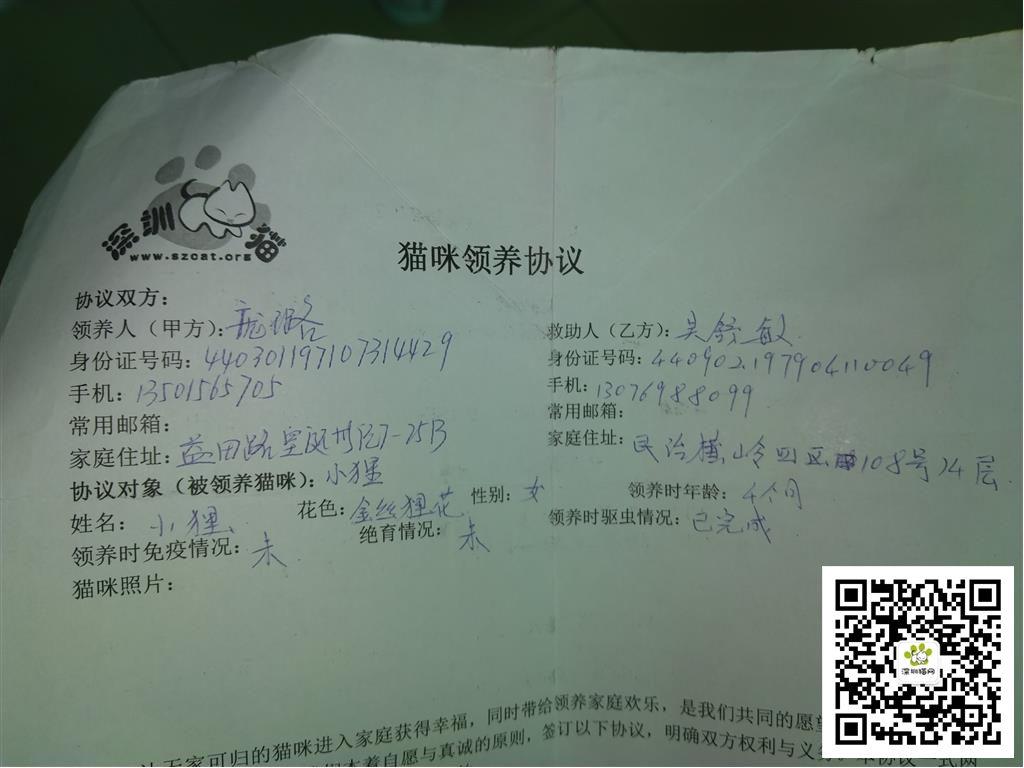 深圳猫
www.szcat.org
猫咪领养协议
协议双方：
领养人（甲方）：龙
救助人（乙方）：吴舒敏
身份证号码：440301197107314429
身份证号码：440902197904110049
手机：13501565705
手机：13076988099
常用邮箱：
常用邮箱：
家庭住址：益田路皇庭 7-25B
家庭住址：民治横岭四区108号24层
协议对象（被领养猫咪）：小狸
姓名：小狸
花色：金丝狸花
性别：女
领养时年龄：4个月
领养时免疫情况：未
绝育情况：未
领养时驱虫情况：已完成
猫咪照片：
无家可归的猫咪进入家庭获得幸福，同时带给领养家庭欢乐，是我们共同的愿望
本着自愿与真诚的原则，签订以下协议，明确双方权利与义务。本协议一式两
深圳猫网